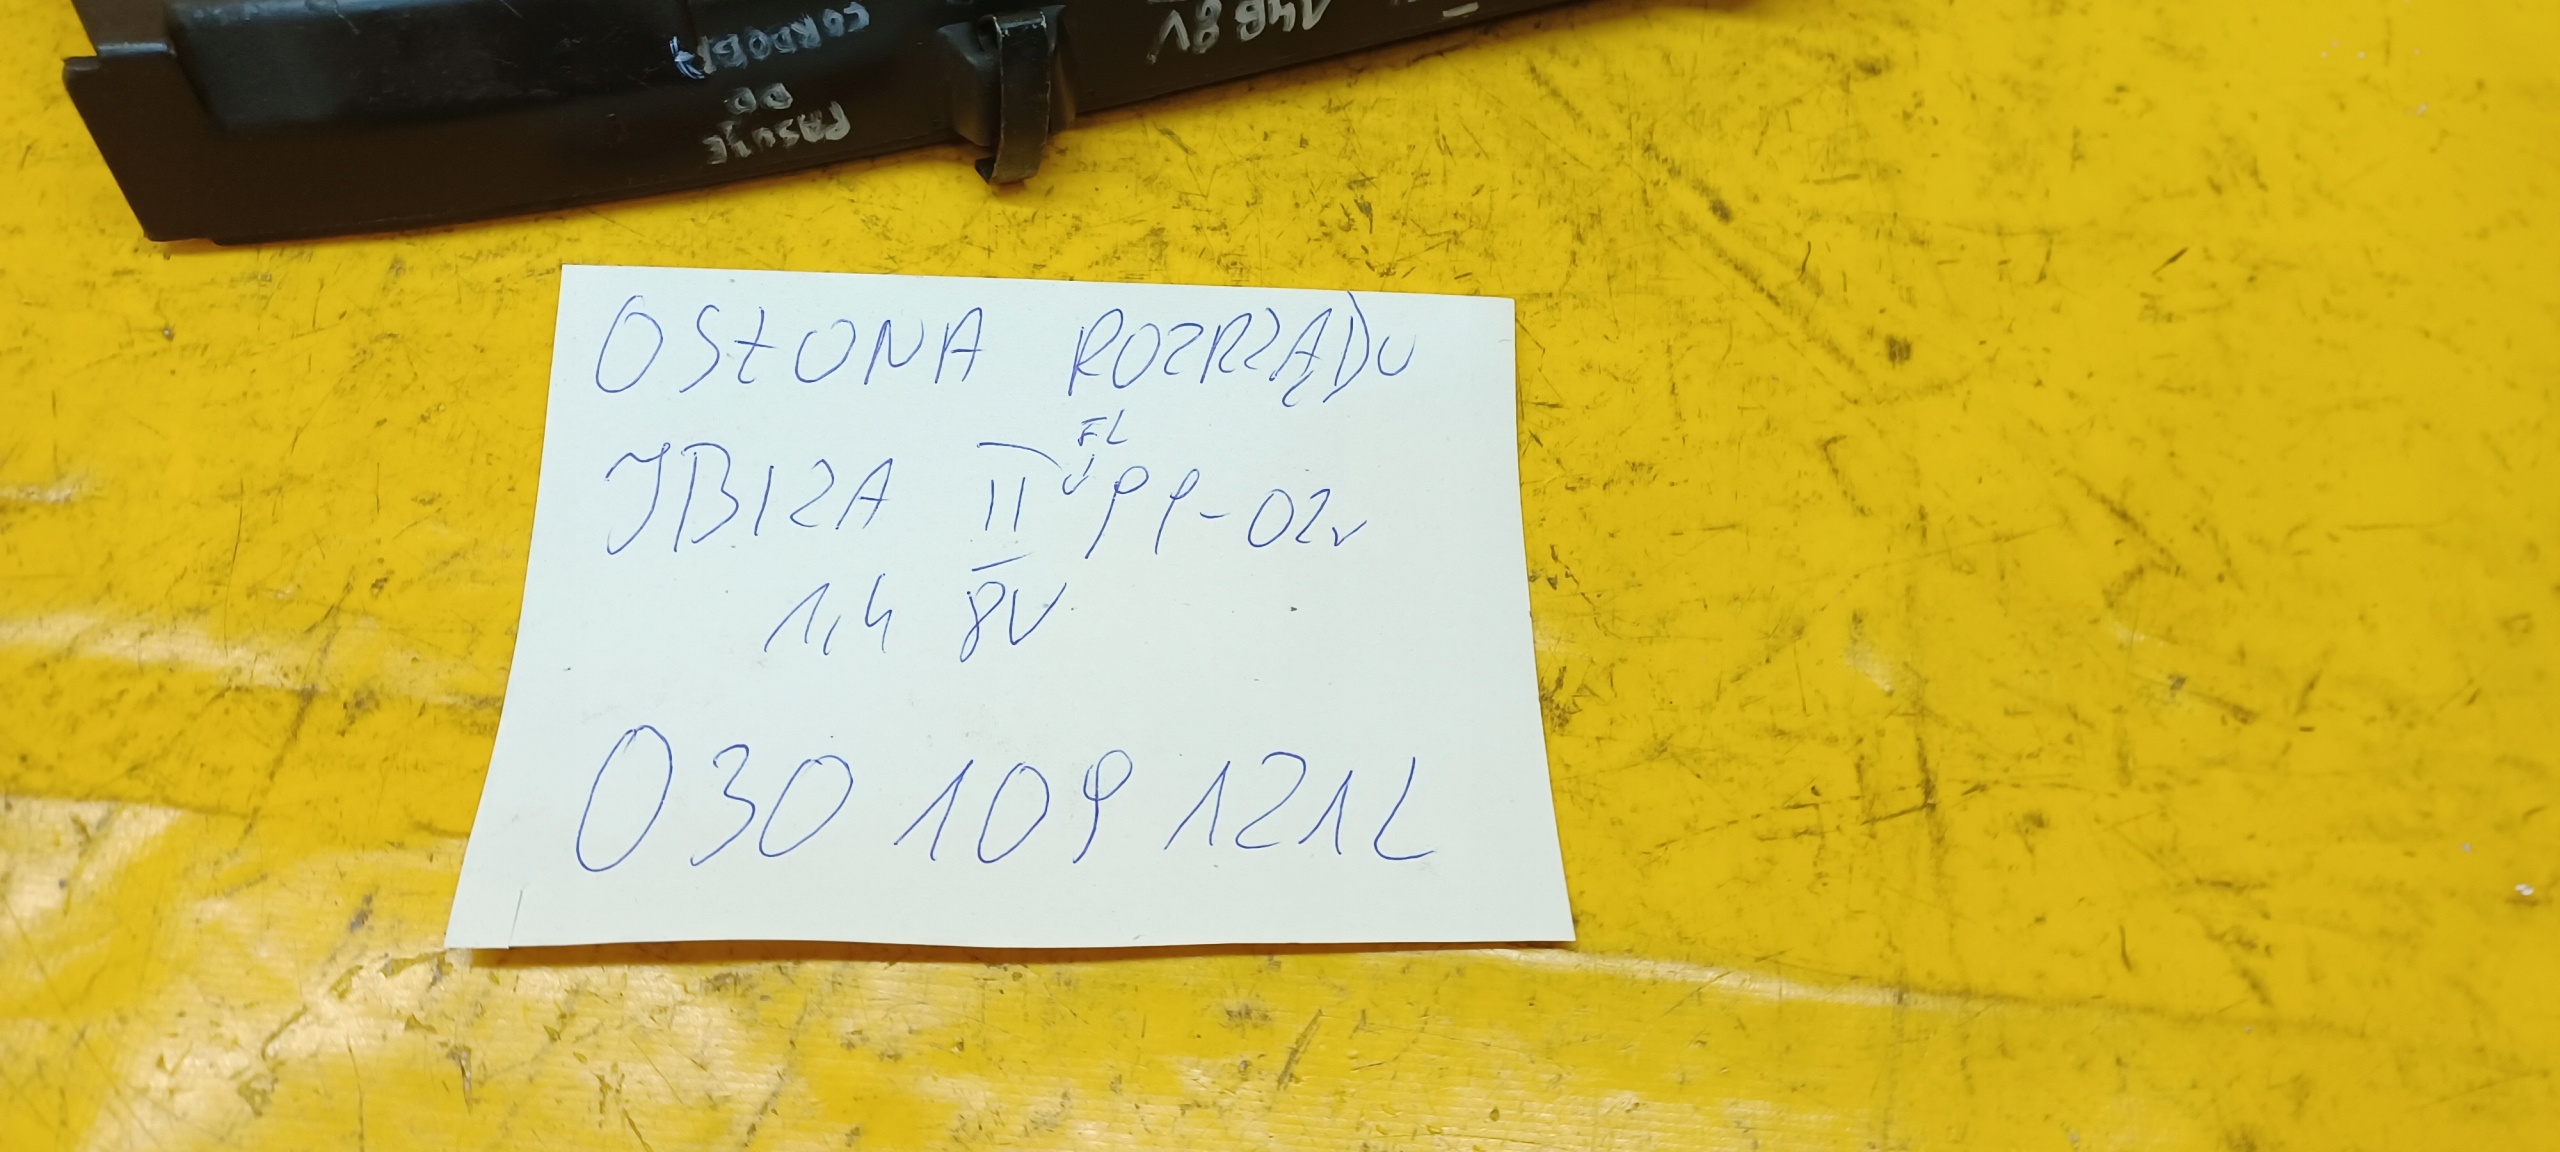 PASUJE
DO
CORDOBA
14B 8V
OSŁONA ROZRZĄDU
IBIZA II FL 99-02r
1,4 8V
030 109 121L